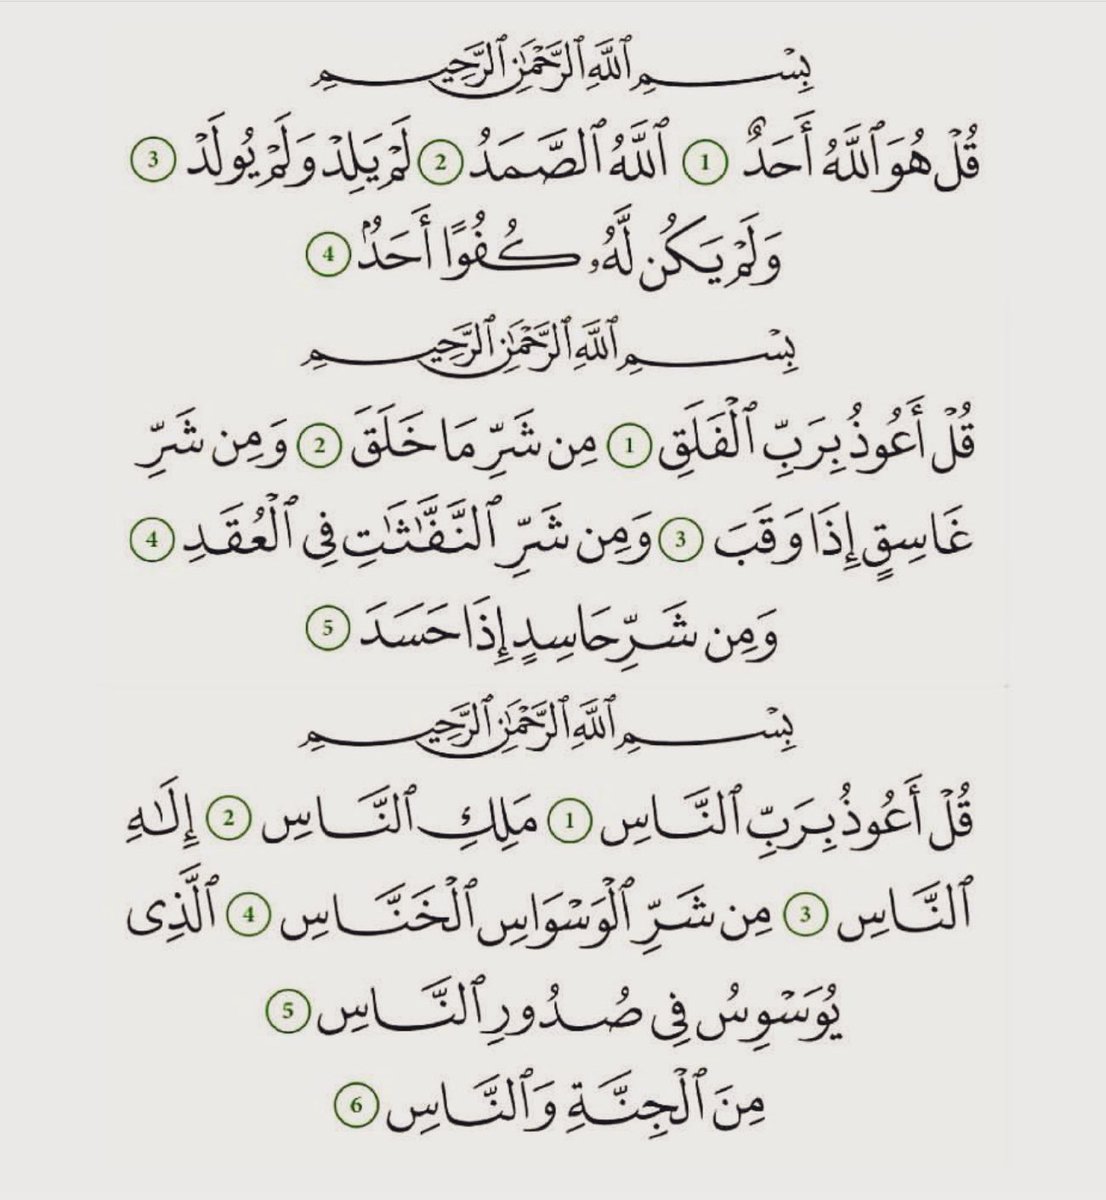 بِسْمِ ٱللَّهِ ٱلرَّحْمَٰنِ ٱلرَّحِيمِ
قُلْ هُوَ ٱللَّهُ أَحَدٌ 1 ٱللَّهُ ٱلصَّمَدُ 2 لَمْ يَلِدْ وَلَمْ يُولَدْ 3
وَلَمْ يَكُن لَّهُۥ كُفُوًا أَحَدٌۢ 4
بِسْمِ ٱللَّهِ ٱلرَّحْمَٰنِ ٱلرَّحِيمِ
قُلْ أَعُوذُ بِرَبِّ ٱلْفَلَقِ 1 مِن شَرِّ مَا خَلَقَ 2 وَمِن شَرِّ
غَاسِقٍ إِذَا وَقَبَ 3 وَمِن شَرِّ ٱلنَّفَّٰثَٰتِ فِى ٱلْعُقَدِ 4
وَمِن شَرِّ حَاسِدٍ إِذَا حَسَدَ 5
بِسْمِ ٱللَّهِ ٱلرَّحْمَٰنِ ٱلرَّحِيمِ
قُلْ أَعُوذُ بِرَبِّ ٱلنَّاسِ 1 مَلِكِ ٱلنَّاسِ 2 إِلَٰهِ
ٱلنَّاسِ 3 مِن شَرِّ ٱلْوَسْوَاسِ ٱلْخَنَّاسِ 4 ٱلَّذِى
يُوَسْوِسُ فِى صُدُورِ ٱلنَّاسِ 5
مِنَ ٱلْجِنَّةِ وَٱلنَّاسِ 6